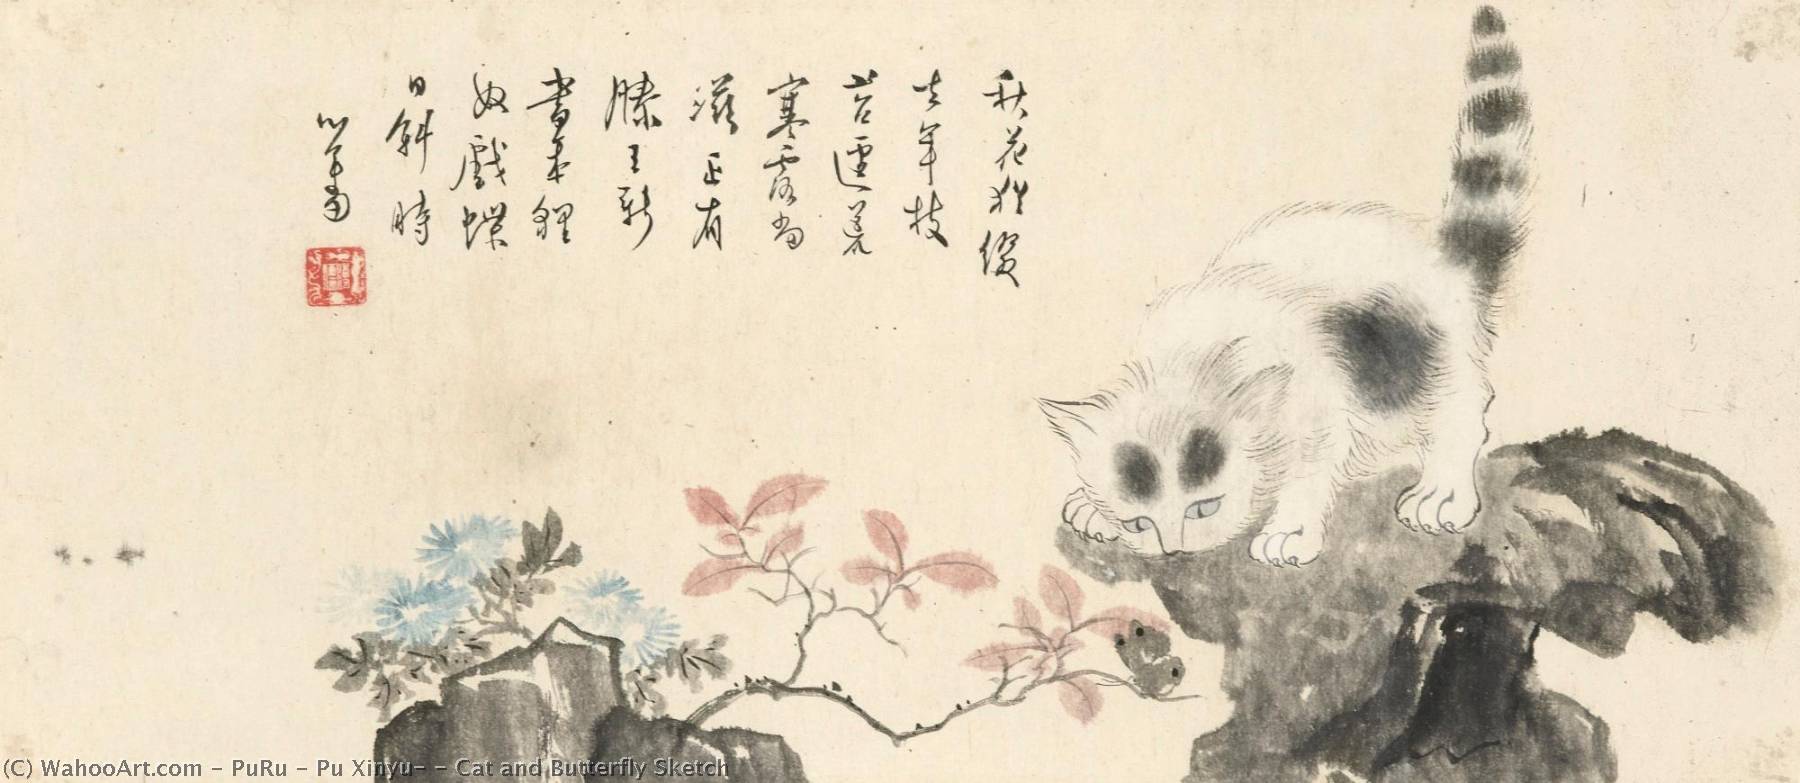 秋花猶綴
去年枝
苔逕荒
寒露尚
滋正有
滕王新
畫本貍
奴戲蝶
日斜時
心畬
(C) WahooArt.com - PuRu - Pu Xinyu- - Cat and Butterfly Sketch